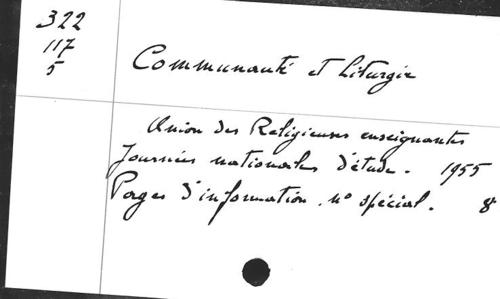 322
117
5
Communauté et Liturgie
Union des Religieuses enseignantes
Journées nationales d'étude. 1955
Pages d'information. nº spécial. 8º